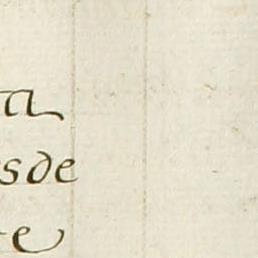 ta
sde
e